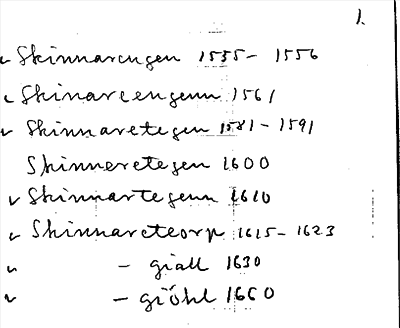 1.
✓ Skinnarengen 1555 - 1556
✓ Skinareengenn 1561
✓ Skinnaretegen 1581 - 1591
Skinneretegen 1600
✓ Skinnartegenn 1610
✓ Skinnareteorp 1615 - 1623
✓ - giäll 1630
✓ - giöhl 1660